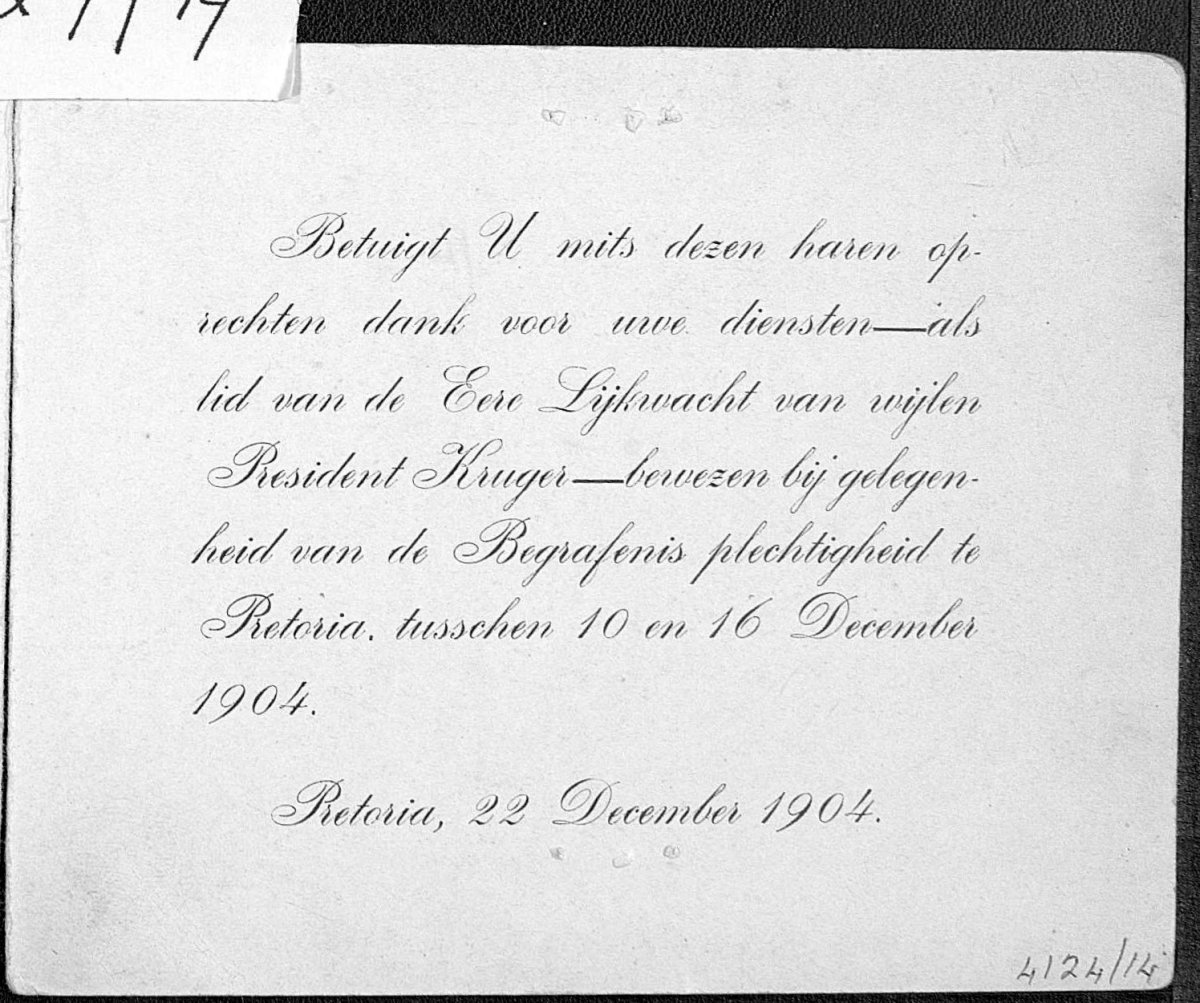 Betuigt U mits dezen haren op-
rechten dank voor uwe diensten—als
lid van de Eere Lijkwacht van wijlen
President Kruger—bewezen bij gelegen-
heid van de Begrafenis plechtigheid te
Pretoria. tusschen 10 en 16 December
1904.
Pretoria, 22 December 1904.
4124/14